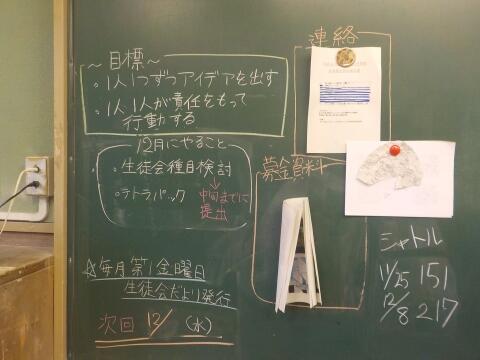 ～目標～
。1人1つずつアイデアを出す
。1人1人が責任をもって
行動する
12月にやること
。生徒会種目検討
。テトラパック
中旬までに
提出
☆毎月第1金曜日
生徒会だより発行
次回 12/ (水)
連絡
募金資料
シャトル
11/25 151
12/8 217